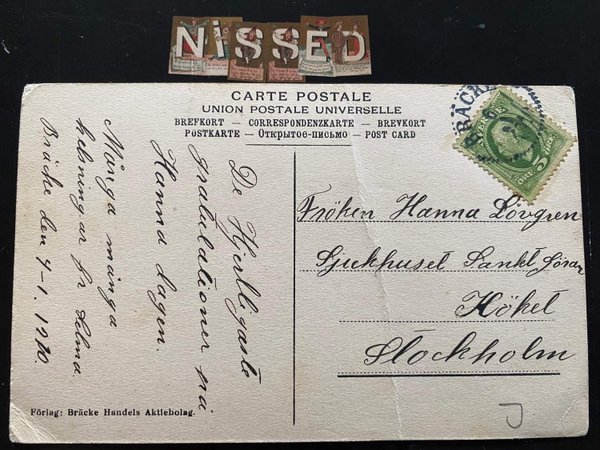 NiSSED
CARTE POSTALE
UNION POSTALE UNIVERSELLE
BREFKORT — CORRESPONDENZKARTE — BREVKORT
POSTKARTE — Открытое-письмо — POST CARD
BRÄCKE
De Hjertligaste
gratulationer på
Hanna dagen.
Många många
helsningar fr Selma
Bräcke den 4-1. 1910.
Fröken Hanna Lövgren
Sjukhuset Sankt Göran
Höket
Stockholm
Förlag: Bräcke Handels Aktiebolag.